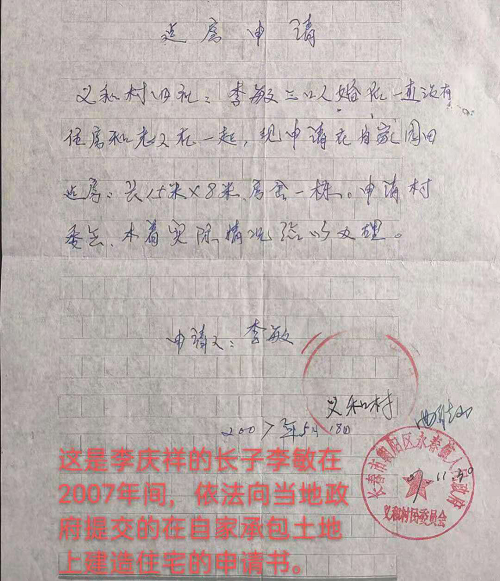 造房申请
义和村旧社：李敏 婚后一直没有
住房和老人在一起，现申请在自家园田
造房：长15米×8米，房舍一栋。申请村
委会，本着实际情况给以办理。
申请人：李敏
义和村
2007年5月18日
长春市朝阳区永春镇 政府
义和村民委员会
这是李庆祥的长子李敏在
2007年间，依法向当地政
府提交的在自家承包土地
上建造住宅的申请书。